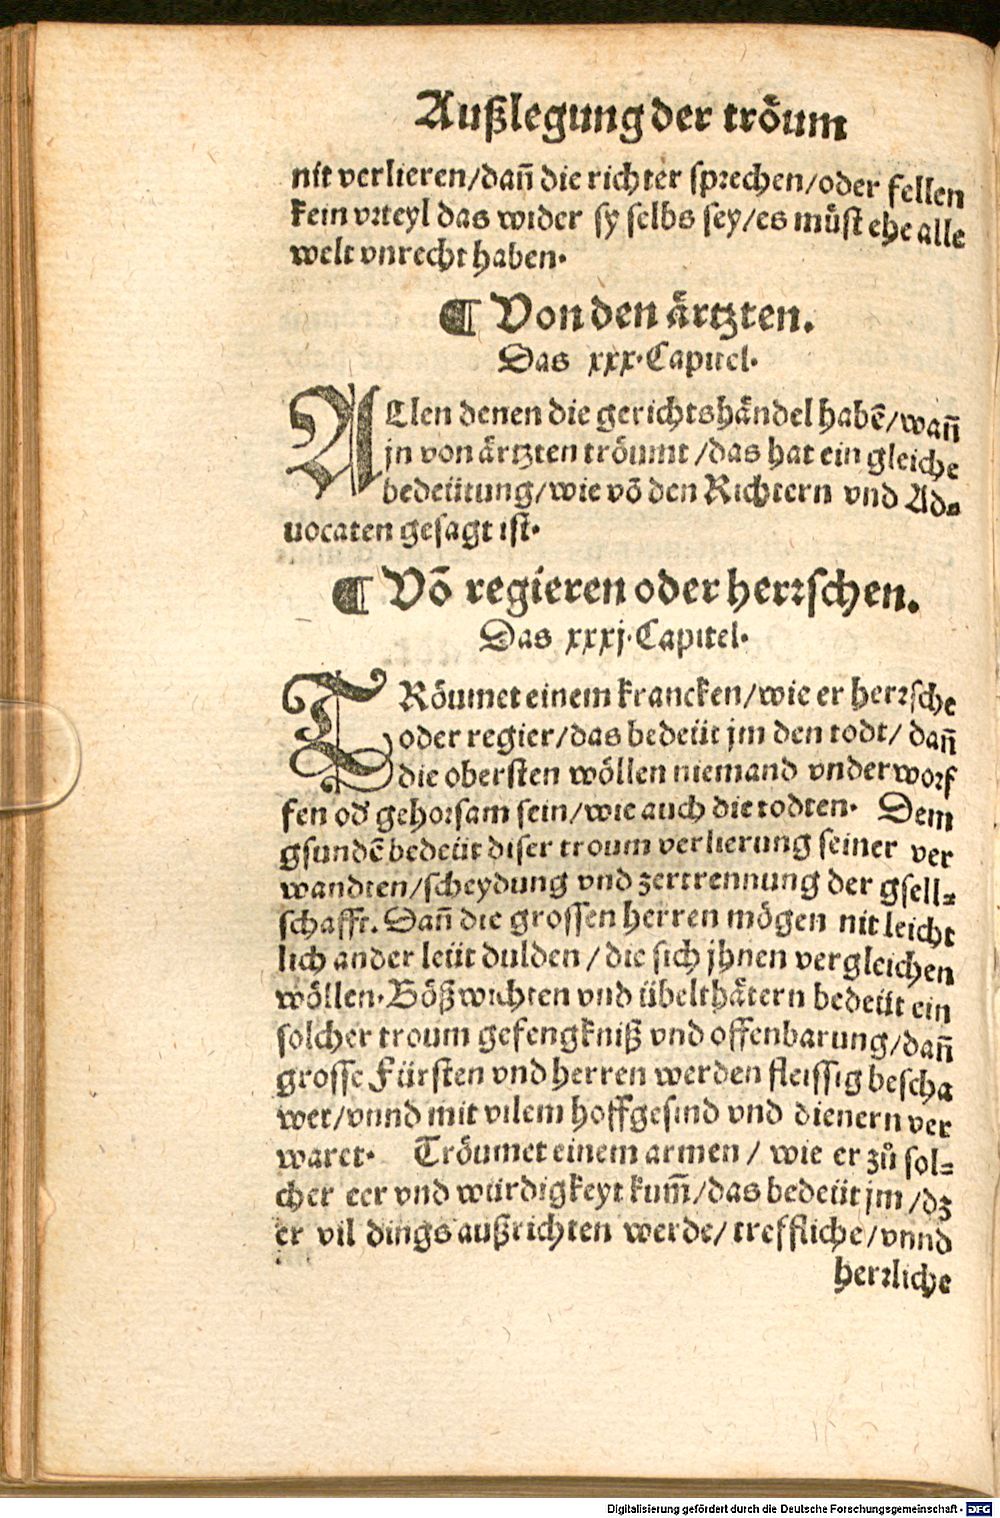 Außlegung der tröum
nit verlieren/dañ die richter sprechen/oder fellen
kein vrteyl das wider sy selbs sey/es müst ehe alle
welt vnrecht haben.
¶ Von den ärtzten.
Das xxx. Capitel.
ALlen denen die gerichtshändel habē/wañ
jn von ärtzten tröumt/das hat ein gleiche
bedeütung/wie vō den Richtern vnd Ad⸗
uocaten gesagt ist.
¶ Vō regieren oder herrschen.
Das xxxj. Capitel.
TRöumet einem krancken/wie er herrsche
oder regier/das bedeüt jm den todt/ dañ
die obersten wöllen niemand vnderworf
fen od' gehorsam sein/wie auch die todten. Dem
gsundē bedeüt diser troum verlierung seiner ver
wandten/scheydung vnd zertrennung der gsell⸗
schafft. Dañ die grossen herren mögen nit leicht
lich ander leüt dulden/die sich jhnen vergleichen
wöllen. Bößwichten vnd übelthätern bedeüt ein
solcher troum gefengkniß vnd offenbarung/dañ
grosse Fürsten vnd herren werden fleissig bescha
wet/vnnd mit vilem hoffgesind vnd dienern ver
waret. Tröumet einem armen / wie er zů sol⸗
cher eer vnd würdigkeyt kum̄/das bedeüt jm/dz
er vil dings außrichten werde/treffliche/vnnd
herrliche
Digitalisierung gefördert durch die Deutsche Forschungsgemeinschaft - DFG